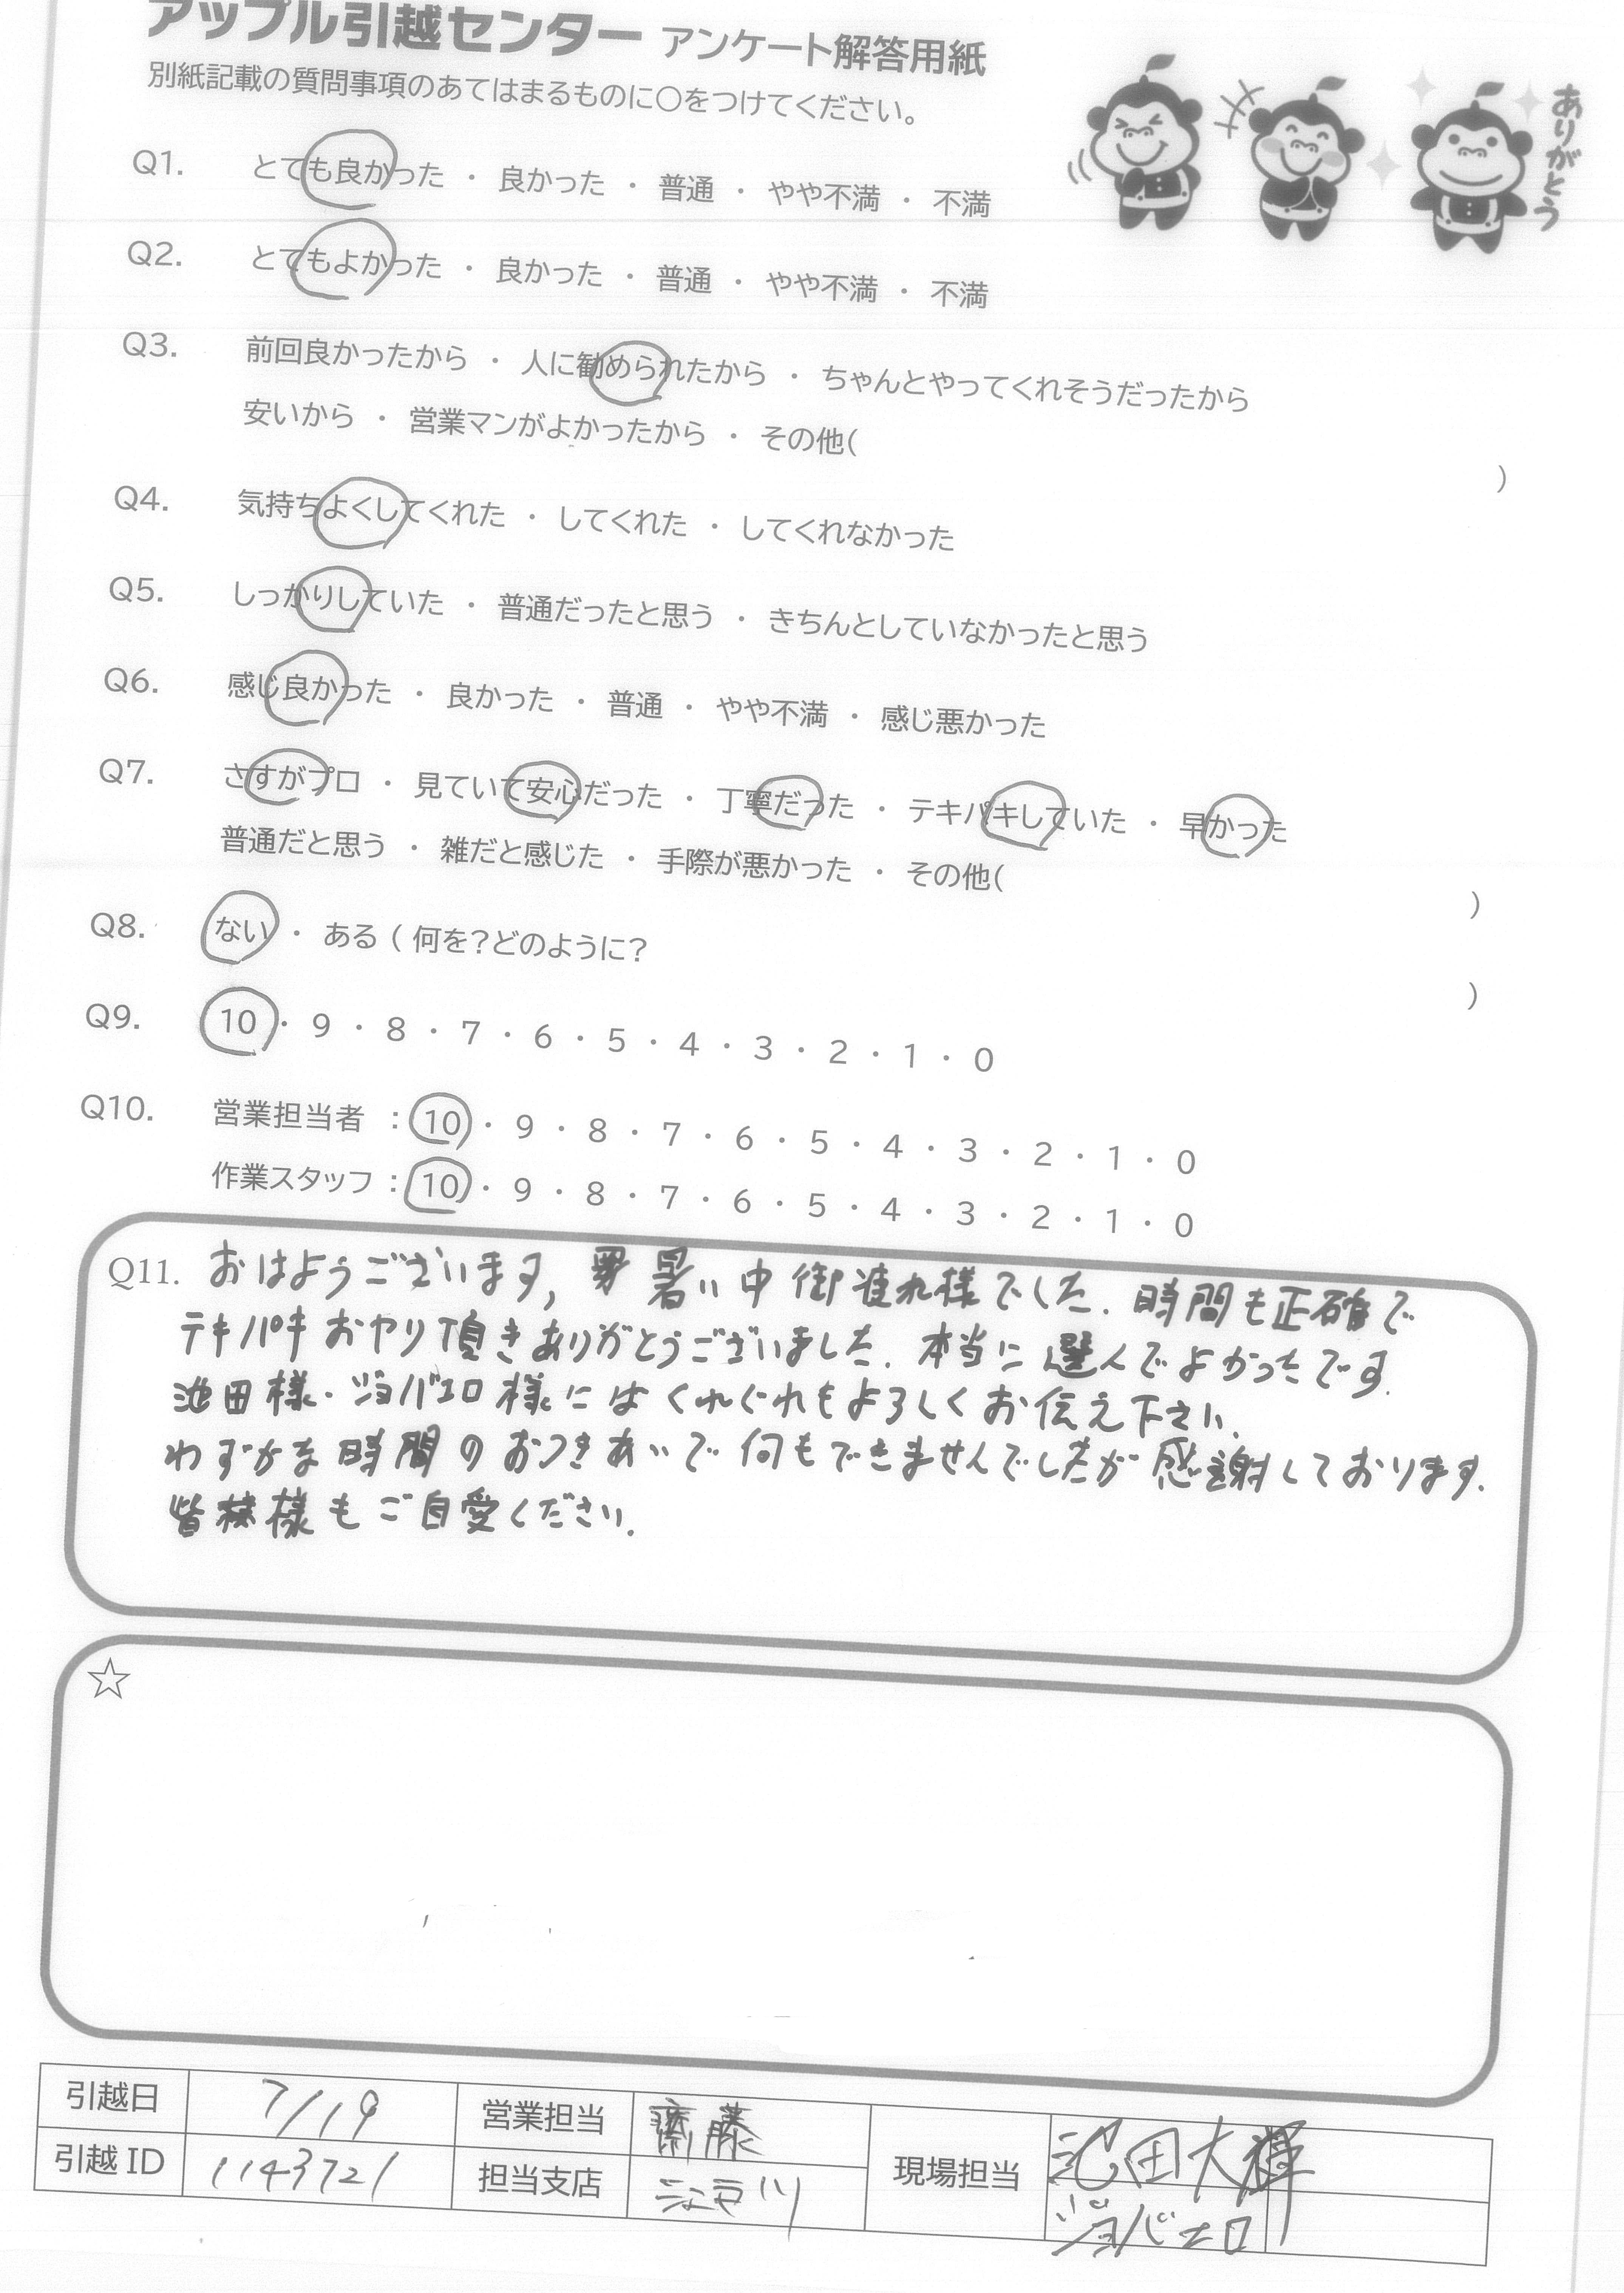 アップル引越センター アンケート解答用紙
別紙記載の質問事項のあてはまるものに〇をつけてください。
ありがとう
Q1. とても良かった ・ 良かった ・ 普通 ・ やや不満 ・ 不満
Q2. とてもよかった ・ 良かった ・ 普通 ・ やや不満 ・ 不満
Q3. 前回良かったから ・ 人に勧められたから ・ ちゃんとやってくれそうだったから
安いから ・ 営業マンがよかったから ・ その他( )
Q4. 気持ちよくしてくれた ・ してくれた ・ してくれなかった
Q5. しっかりしていた ・ 普通だったと思う ・ きちんとしていなかったと思う
Q6. 感じ良かった ・ 良かった ・ 普通 ・ やや不満 ・ 感じ悪かった
Q7. さすがプロ ・ 見ていて安心だった ・ 丁寧だった ・ テキパキしていた ・ 早かった
普通だと思う ・ 雑だと感じた ・ 手際が悪かった ・ その他( )
Q8. ない ・ ある ( 何を?どのように? )
Q9. 10 ・ 9 ・ 8 ・ 7 ・ 6 ・ 5 ・ 4 ・ 3 ・ 2 ・ 1 ・ 0
Q10. 営業担当者 : 10 ・ 9 ・ 8 ・ 7 ・ 6 ・ 5 ・ 4 ・ 3 ・ 2 ・ 1 ・ 0
作業スタッフ : 10 ・ 9 ・ 8 ・ 7 ・ 6 ・ 5 ・ 4 ・ 3 ・ 2 ・ 1 ・ 0
Q11. おはようございます, 暑い中御疲れ様でした. 時間も正確で
テキパキおやり頂きありがとうございました. 本当に選んでよかったです.
池田様・ジョバエロ様にはくれぐれもよろしくお伝え下さい.
わずかな時間のおつきあいで何もできませんでしたが感謝しております.
皆様もご自愛ください.
☆
引越日 7/19 営業担当 齋藤 現場担当 池田大輝
引越ID 1143721 担当支店 江戸川 ジョバエロ